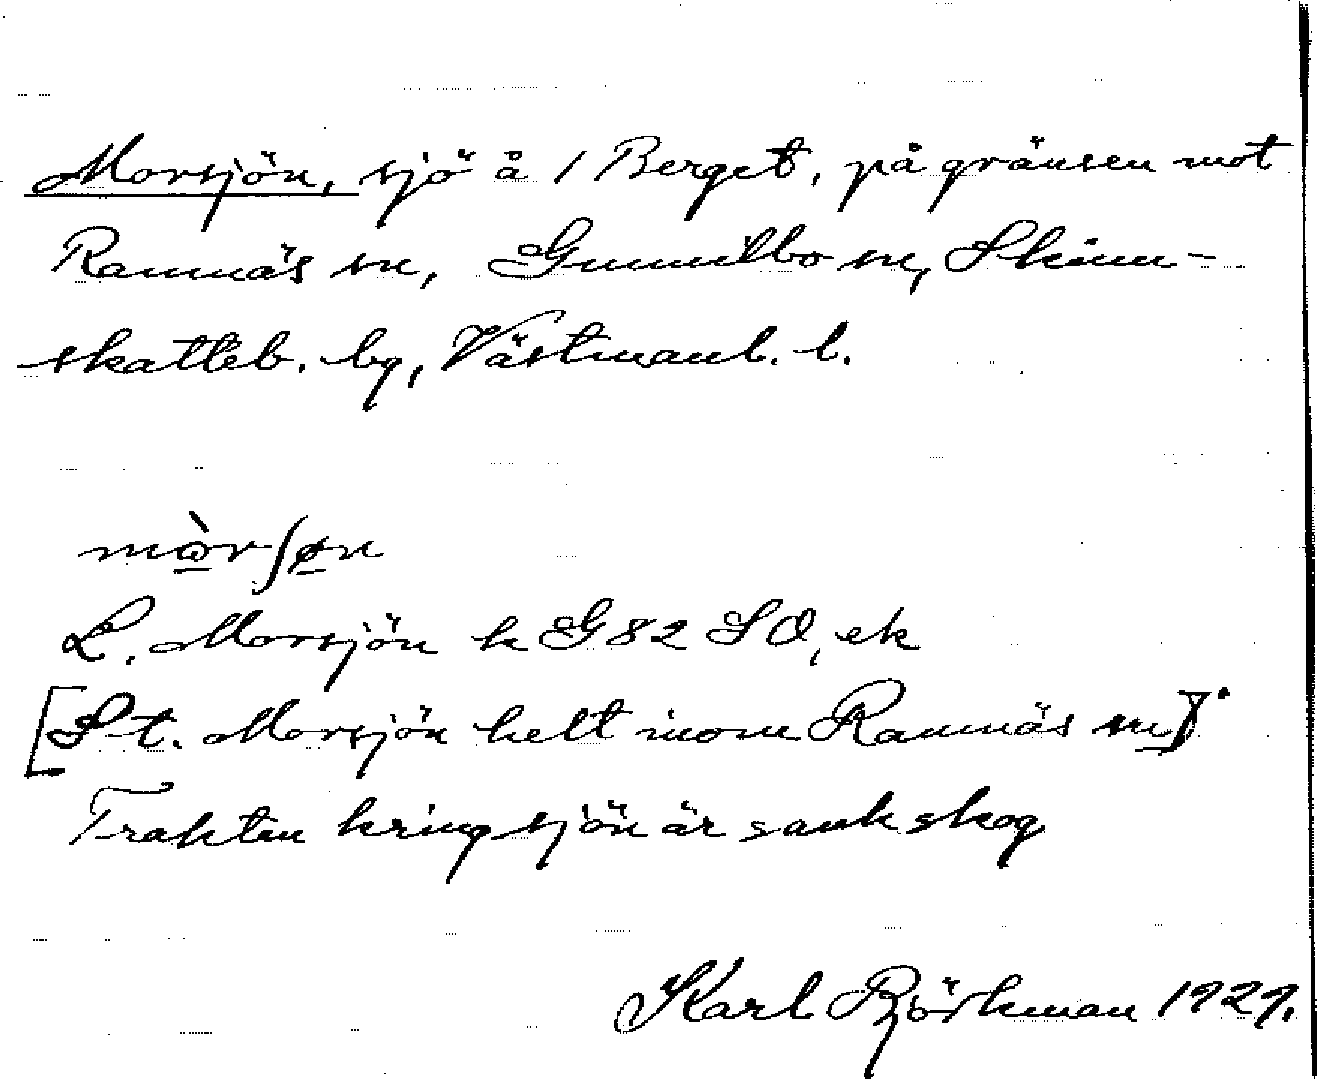 Morsjön, sjö å 1 Berget, på gränsen mot
Ramnäs sn, Gunnilbo sn, Skinn-
skatteb. bg, Västmanl. l.
mòrʃøn
L. Morsjön k G82 SO, ek
[St. Morsjön helt inom Ramnäs sn].
Trakten kring sjön är sank skog
Karl Björkman 1927.